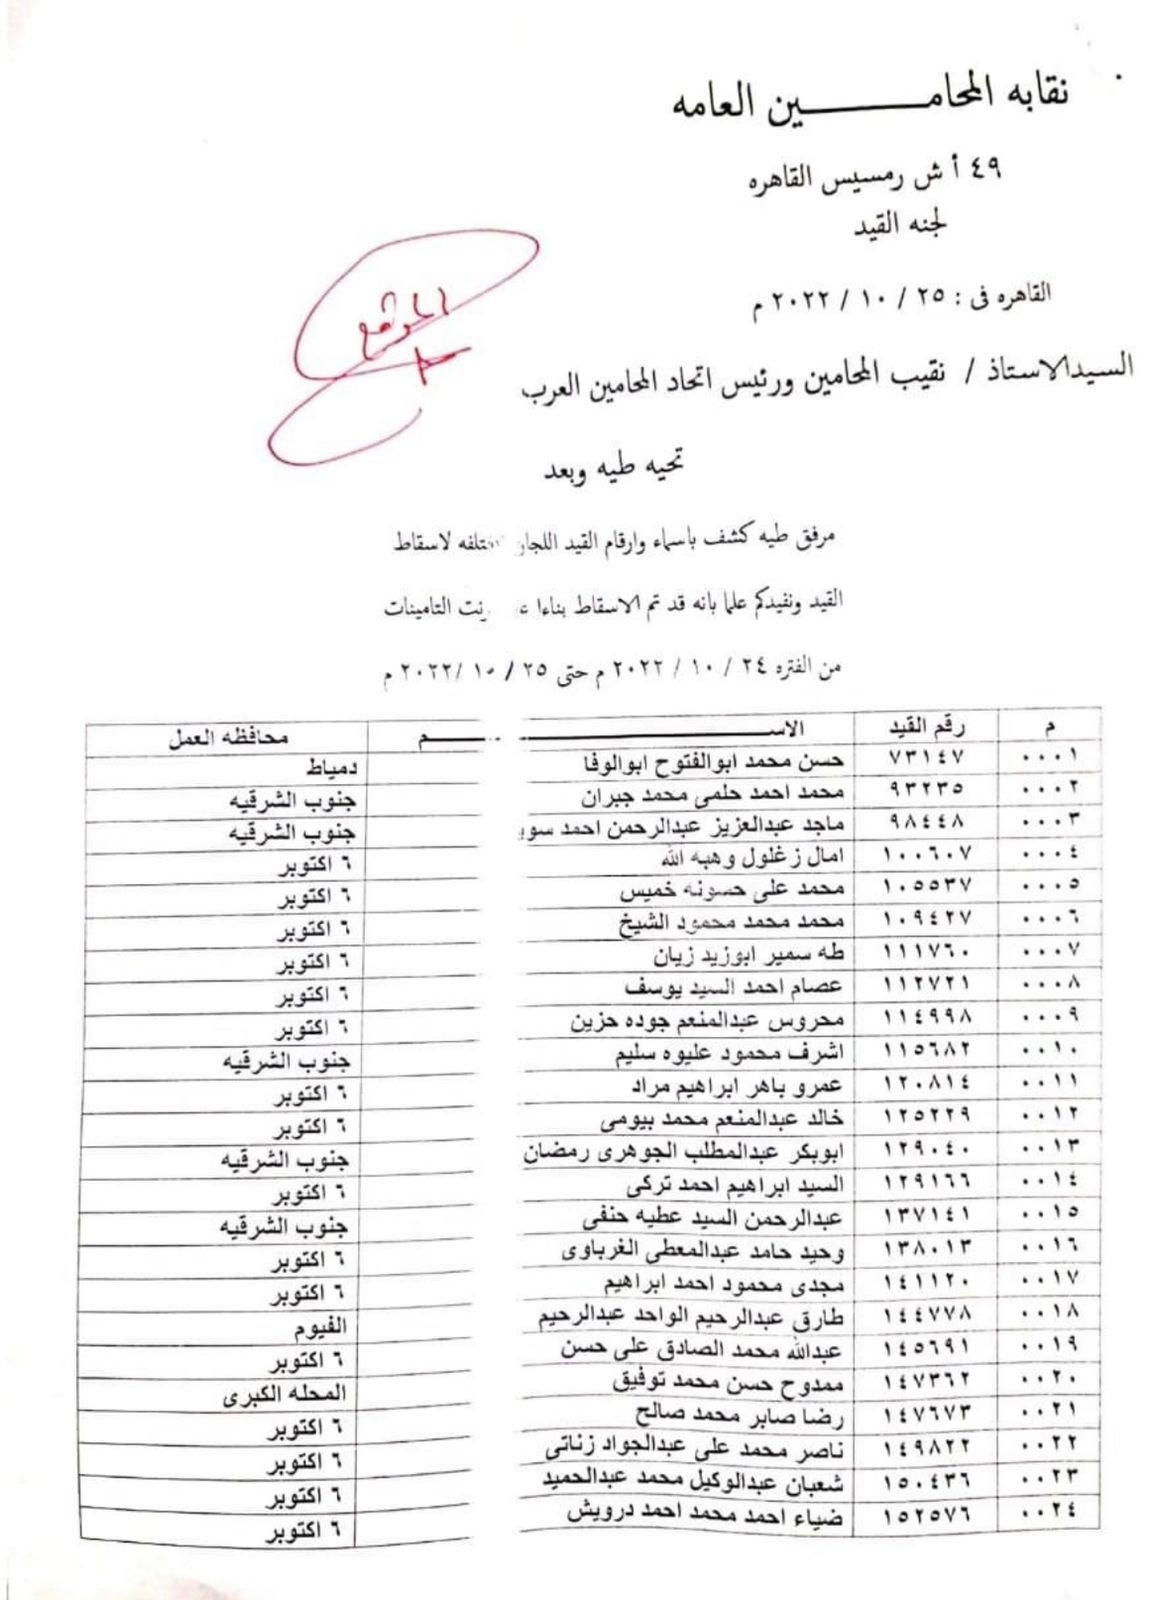 نقابه المحامـــــــين العامه
٤٩ أ ش رمسيس القاهره
لجنه القيد
القاهره فى : ٢٥ / ١٠ / ٢٠٢٢ م
الموقع
السيدالاستاذ / نقيب المحامين ورئيس اتحاد المحامين العرب
تحيه طيه وبعد
مرفق طيه كشف باسماء وارقام القيد اللجان لاسقاط
القيد ونفيدكم علما بانه قد تم الاسقاط بناءا التامينات
من الفتره ٢٤ / ١٠ / ٢٠٢٢ م حتى ٢٥ / ١٠ /٢٠٢٢ م
م رقم القيد الاســـــــــــــم محافظه العمل
٠٠٠١ ٧٣١٤٧ حسن محمد ابوالفتوح ابوالوفا دمياط
٠٠٠٢ ٩٣٢٣٥ محمد احمد حلمى محمد جبران جنوب الشرقيه
٠٠٠٣ ٩٨٤٤٨ ماجد عبدالعزيز عبدالرحمن احمد جنوب الشرقيه
٠٠٠٤ ١٠٠٦٠٧ امال زغلول وهبه الله ٦ اكتوبر
٠٠٠٥ ١٠٥٥٣٧ محمد على حسونه خميس ٦ اكتوبر
٠٠٠٦ ١٠٩٤٢٧ محمد محمد محمود الشيخ ٦ اكتوبر
٠٠٠٧ ١١١٧٦٠ طه سمير ابوزيد زيان ٦ اكتوبر
٠٠٠٨ ١١٢٧٢١ عصام احمد السيد يوسف ٦ اكتوبر
٠٠٠٩ ١١٤٩٩٨ محروس عبدالمنعم جوده حزين ٦ اكتوبر
٠٠١٠ ١١٥٦٨٢ اشرف محمود عليوه سليم جنوب الشرقيه
٠٠١١ ١٢٠٨١٤ عمرو باهر ابراهيم مراد ٦ اكتوبر
٠٠١٢ ١٢٥٢٢٩ خالد عبدالمنعم محمد بيومى ٦ اكتوبر
٠٠١٣ ١٢٩٠٤٠ ابوبكر عبدالمطلب الجوهرى رمضان جنوب الشرقيه
٠٠١٤ ١٢٩١٦٦ السيد ابراهيم احمد تركى ٦ اكتوبر
٠٠١٥ ١٣٧١٤١ عبدالرحمن السيد عطيه حنفى جنوب الشرقيه
٠٠١٦ ١٣٨٠١٣ وحيد حامد عبدالمعطى الغرباوى ٦ اكتوبر
٠٠١٧ ١٤١١٢٠ مجدى محمود احمد ابراهيم ٦ اكتوبر
٠٠١٨ ١٤٤٧٧٨ طارق عبدالرحيم الواحد عبدالرحيم الفيوم
٠٠١٩ ١٤٥٦٩١ عبدالله محمد الصادق على حسن ٦ اكتوبر
٠٠٢٠ ١٤٧٣٦٢ ممدوح حسن محمد توفيق المحله الكبرى
٠٠٢١ ١٤٧٦٧٣ رضا صابر محمد صالح ٦ اكتوبر
٠٠٢٢ ١٤٩٨٢٢ ناصر محمد على عبدالجواد زناتى ٦ اكتوبر
٠٠٢٣ ١٥٠٤٣٦ شعبان عبدالوكيل محمد عبدالحميد ٦ اكتوبر
٠٠٢٤ ١٥٢٥٧٦ ضياء احمد محمد احمد درويش ٦ اكتوبر